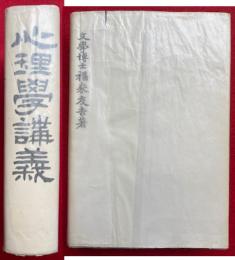 心理學講義
文學博士福來友吉著